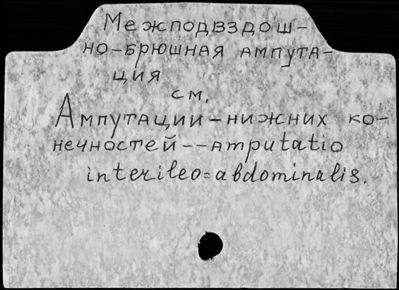 Межподвздош-
но-брюшная ампута-
ция
см.
Ампутации-нижних ко-
нечностей--amputatio
interileo=abdominalis.